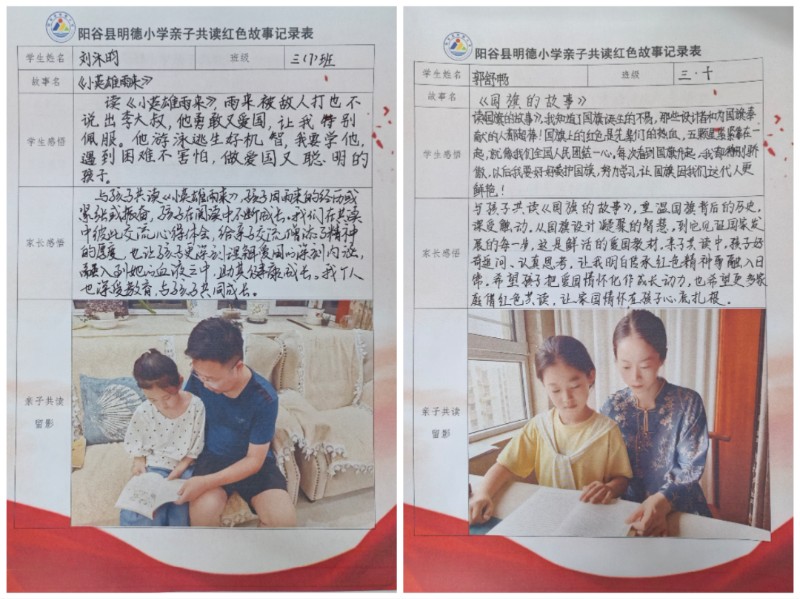 阳谷县明德小学亲子共读红色故事记录表
学生姓名 刘沐昀 班级 三(7)班
故事名 《小英雄雨来》
学生感悟
读《小英雄雨来》,雨来被敌人打也不
说出李大叔,他勇敢又爱国,让我特别
佩服。他游泳逃生好机智,我要学他,
遇到困难不害怕,做爱国又聪明的
孩子。
家长感悟
与孩子共读《小英雄雨来》,孩子因雨来的经历或
紧张或振奋,孩子在阅读中不断成长。我们在共读
中彼此交流心得体会,给亲子交流增添了精神
的厚度,也让孩子更深刻理解爱国的深刻内涵,
融入到她的血液之中,助其健康成长。我个人
也深受教育,与孩子共同成长。
亲子共读
留影
阳谷县明德小学亲子共读红色故事记录表
学生姓名 郭舒畅 班级 三·十
故事名 《国旗的故事》
学生感悟
读国旗的故事》,我知道了国旗诞生的不易,那些设计者和为国旗奉
献的人都超棒!国旗上的红色是先辈们的热血,五颗星紧紧靠在一
起,就像我们全国人民团结一心。每次看到国旗升起,我都特别骄
傲,以后我要好好爱护国旗,努力学习,让国旗因我们这代人更
鲜艳!
家长感悟
与孩子共读《国旗的故事》,重温国旗背后的历史,
深受触动。从国旗设计凝聚的智慧,到它见证国家发
展的每一步,这是鲜活的爱国教材。亲子共读中,孩子好
奇追问、认真思考,让我明白传承红色精神要融入日
常。希望孩子把爱国情怀化作成长动力,也希望更多家
庭借红色共读,让家国情怀在孩子心底扎根。
亲子共读
留影